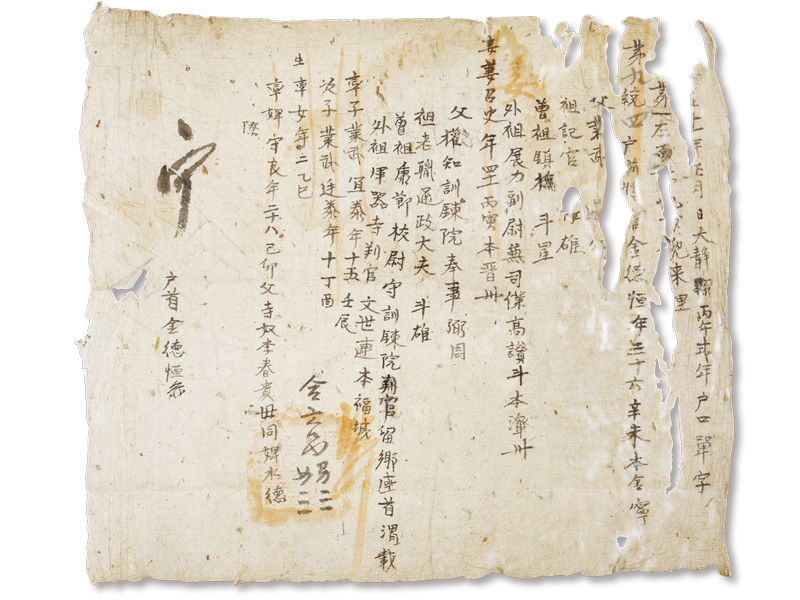 十一年正月 日大静縣丙午式年户口單字
第一右面 兜来里
第九統四户 金德恒年三十六辛未本金寧
父業武
祖記官 雄
曾祖鎮撫 斗星
外祖展力副尉兼司僕高讃斗本濟州
妻姜召史年四十一丙寅本晋州
父權知訓鍊院奉事 弼周
祖老職通政大夫 斗雄
曾祖康節校尉守訓鍊院判官留鄉座首 渭載
外祖軍器寺判官 文世連本福城
率子業武 宜泰年十五壬辰
次子業武 廷泰年十丁酉
生率女年二乙巳
率婢守良年二十八己卯父寺奴李春貴母同婢水德
合六口 男三 女三
户首金德恒